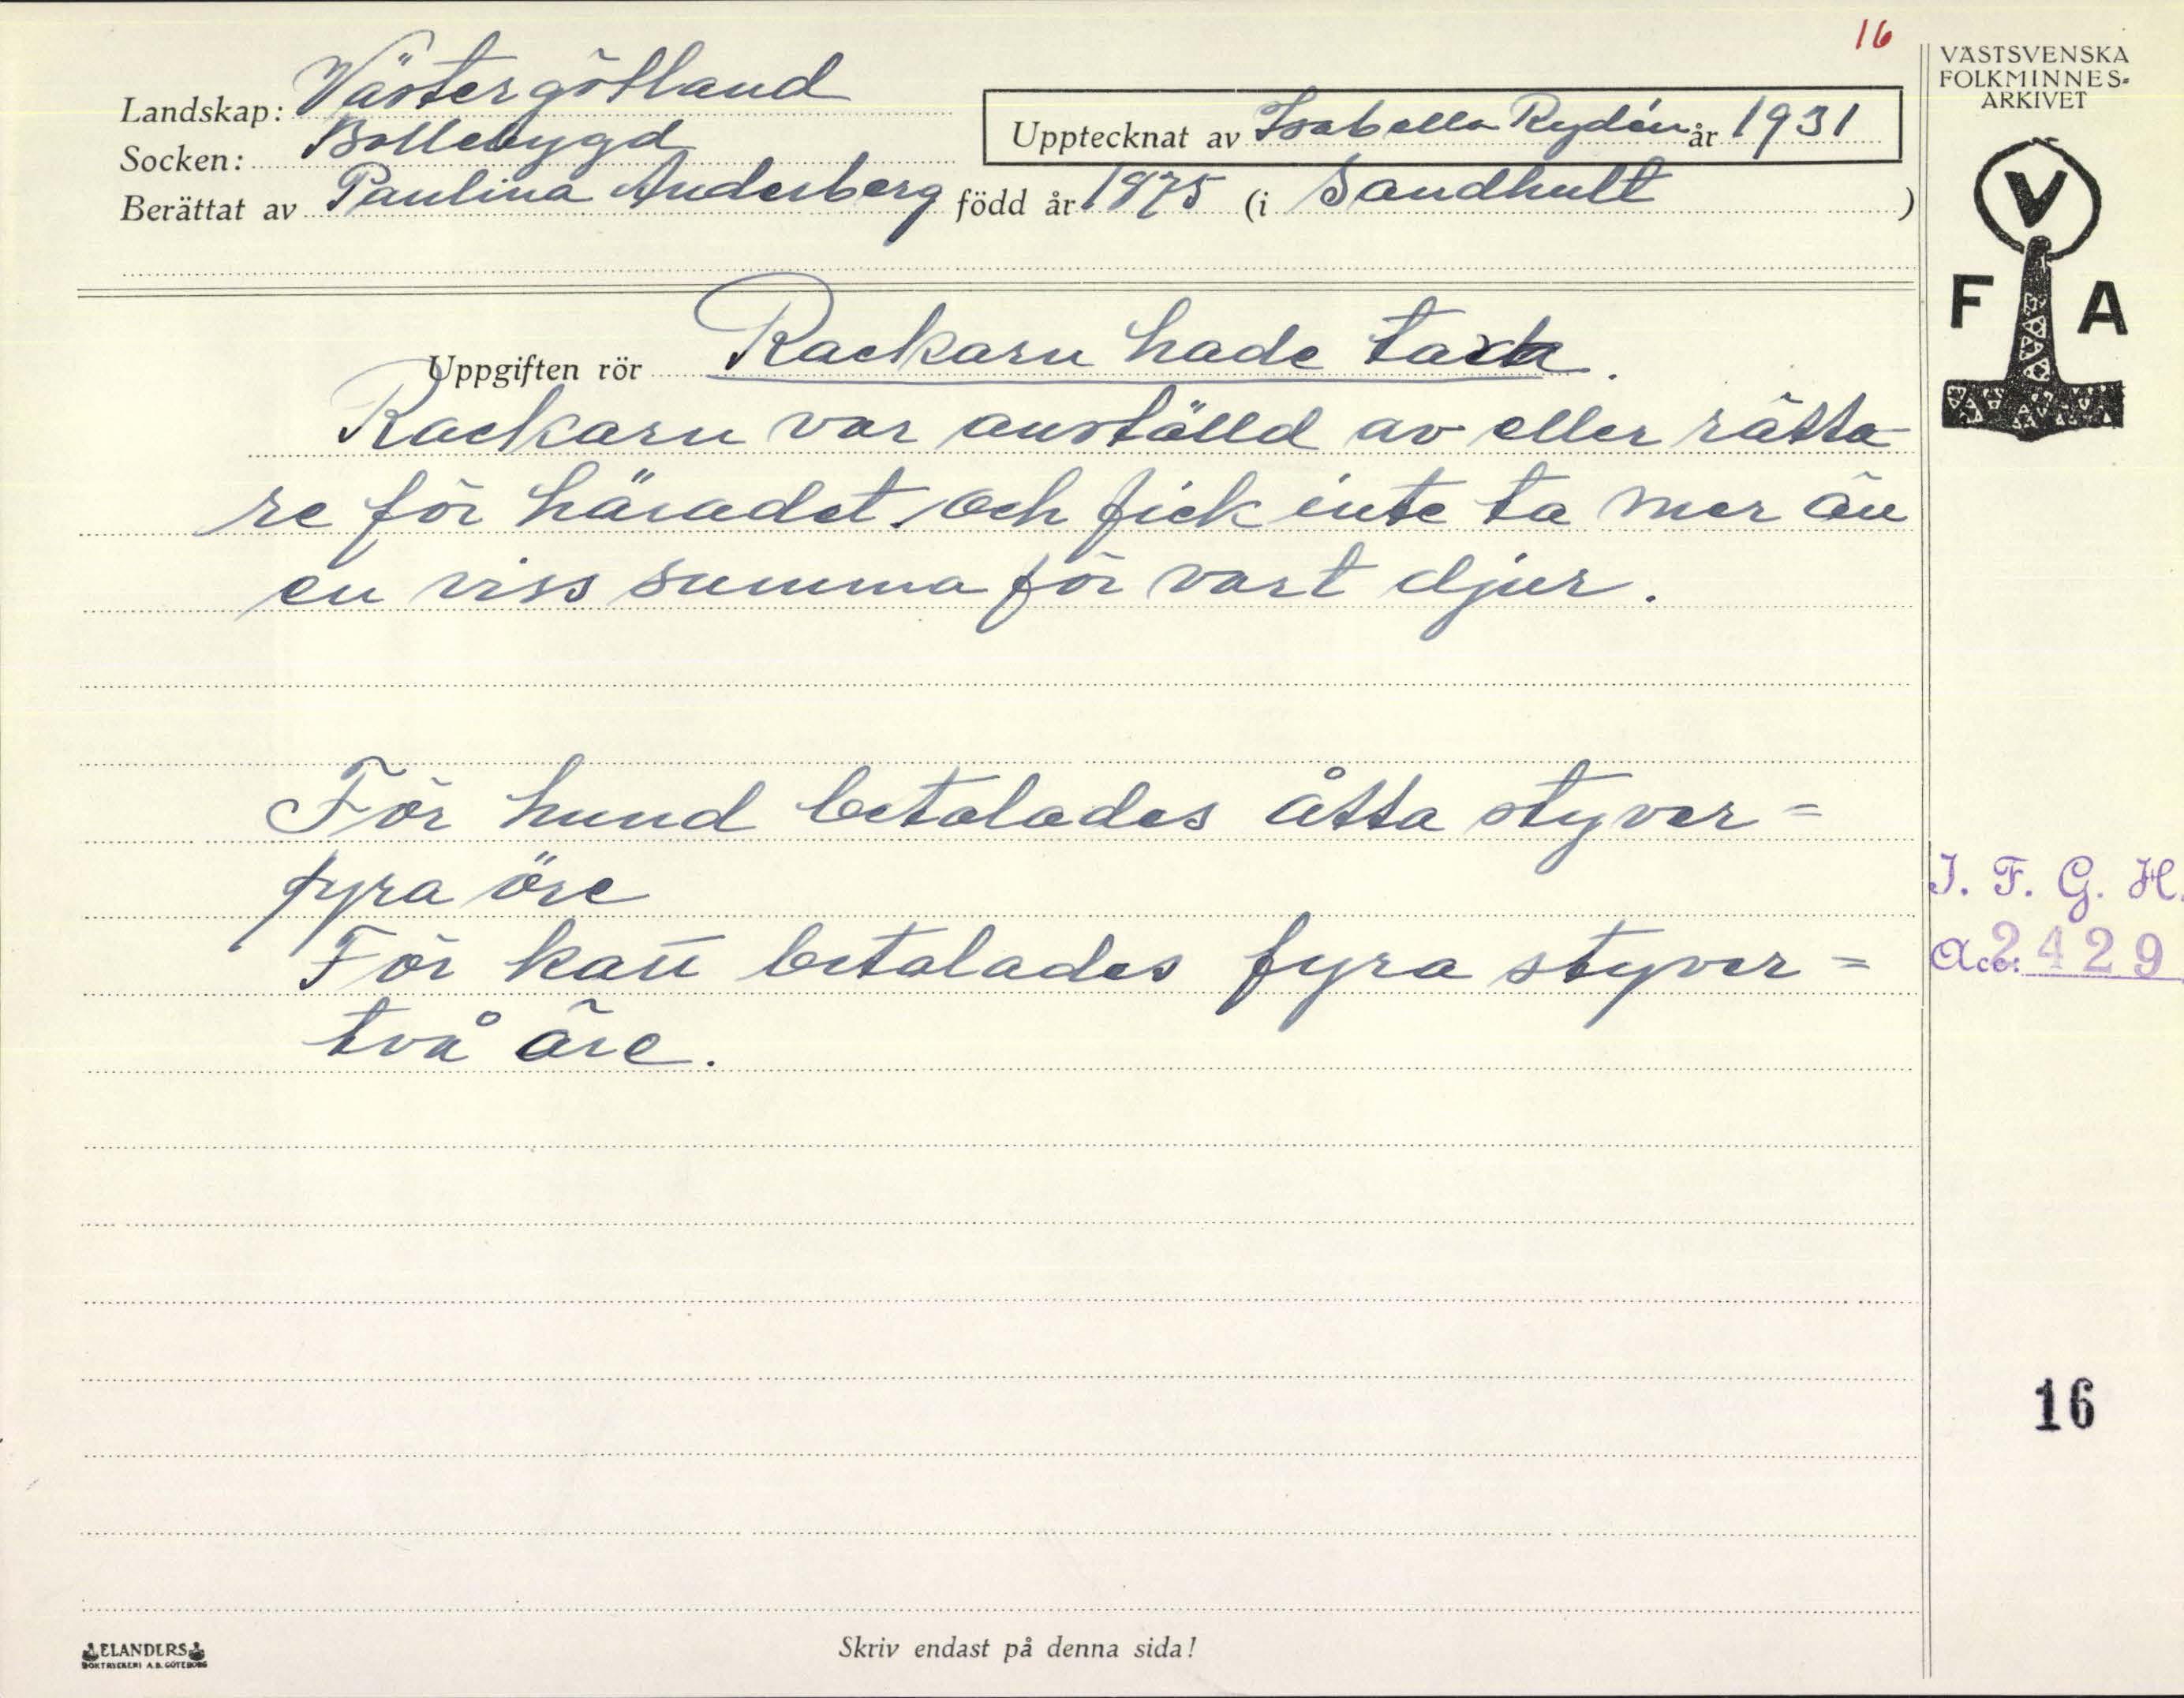 16
VÄSTSVENSKA
FOLKMINNES-
ARKIVET
Landskap: Västergötland
Socken: Bollebygd
Upptecknat av Isabella Rydén år 1931
Berättat av Paulina Anderberg född år 1875 (i Sandhult )
V
F A
Uppgiften rör Rackarn hade taxa.
Rackarn var anställd av eller rätta-
re för häradet och fick inte ta mer än
en viss summa för vart djur.
För hund betalades åtta styver =
fyra öre
För katt betalades fyra styver =
två öre.
I. F. G. H.
Acc: 2429
16
ELANDERS
BOKTRYCKERI A.B. GÖTEBORG
Skriv endast på denna sida!